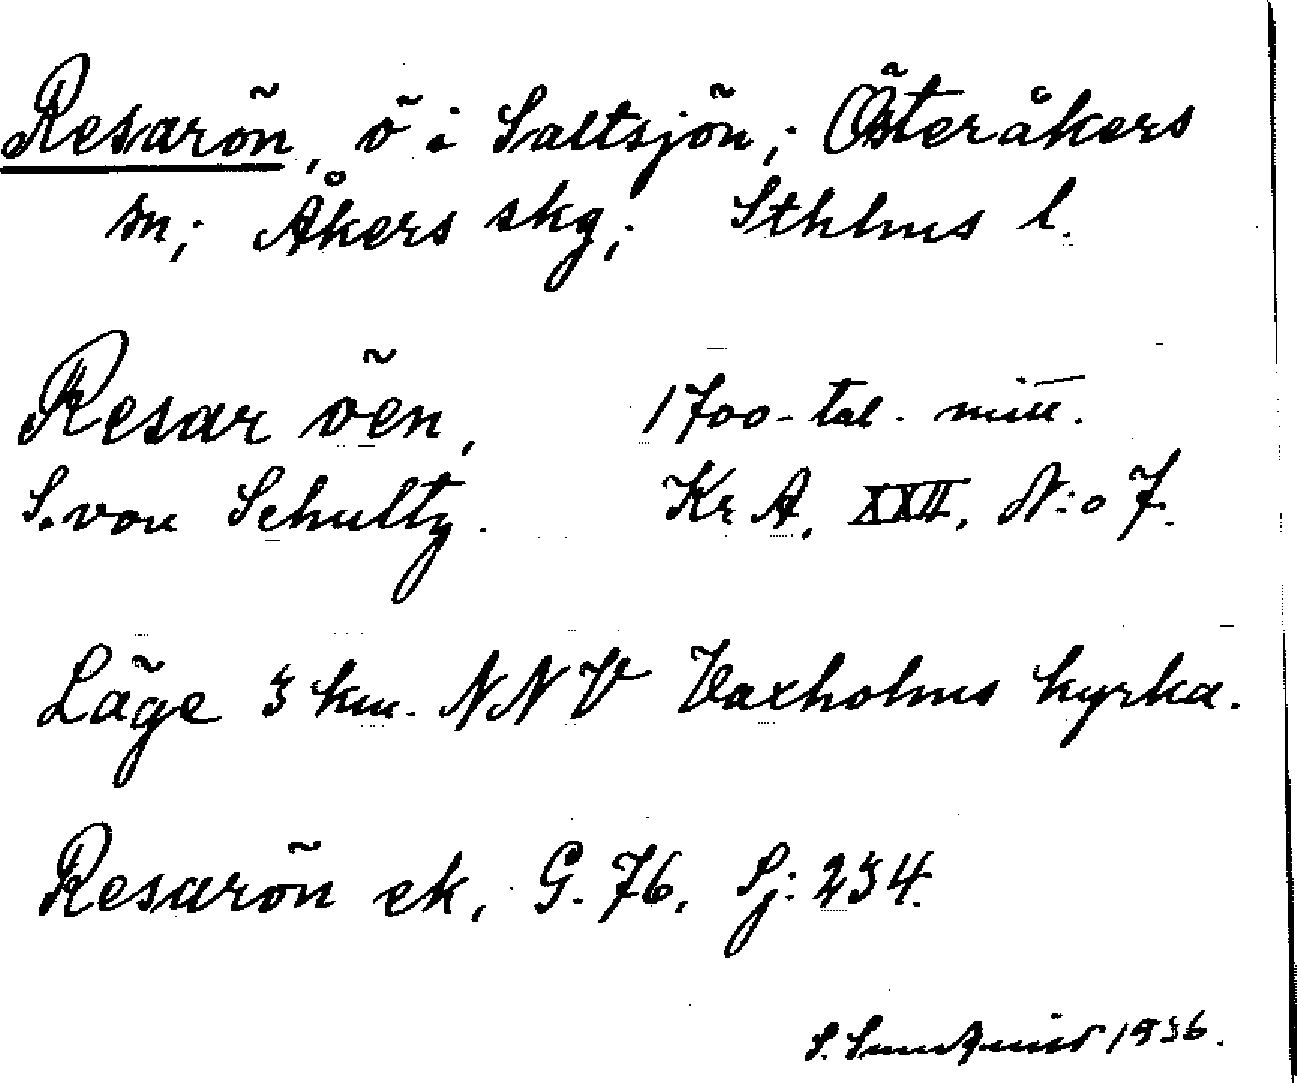 Resarön, ö i Saltsjön; Österåkers
sn; Åkers skg; Sthlms l.
Resar öen, 1700-tal. mitt.
S. von Schultz. Kr A. XXII, N:o 7.
Läge 3 km. NNV Vaxholms kyrka.
Resarön ek, G. 76, Sj: 234.
S. 1936.